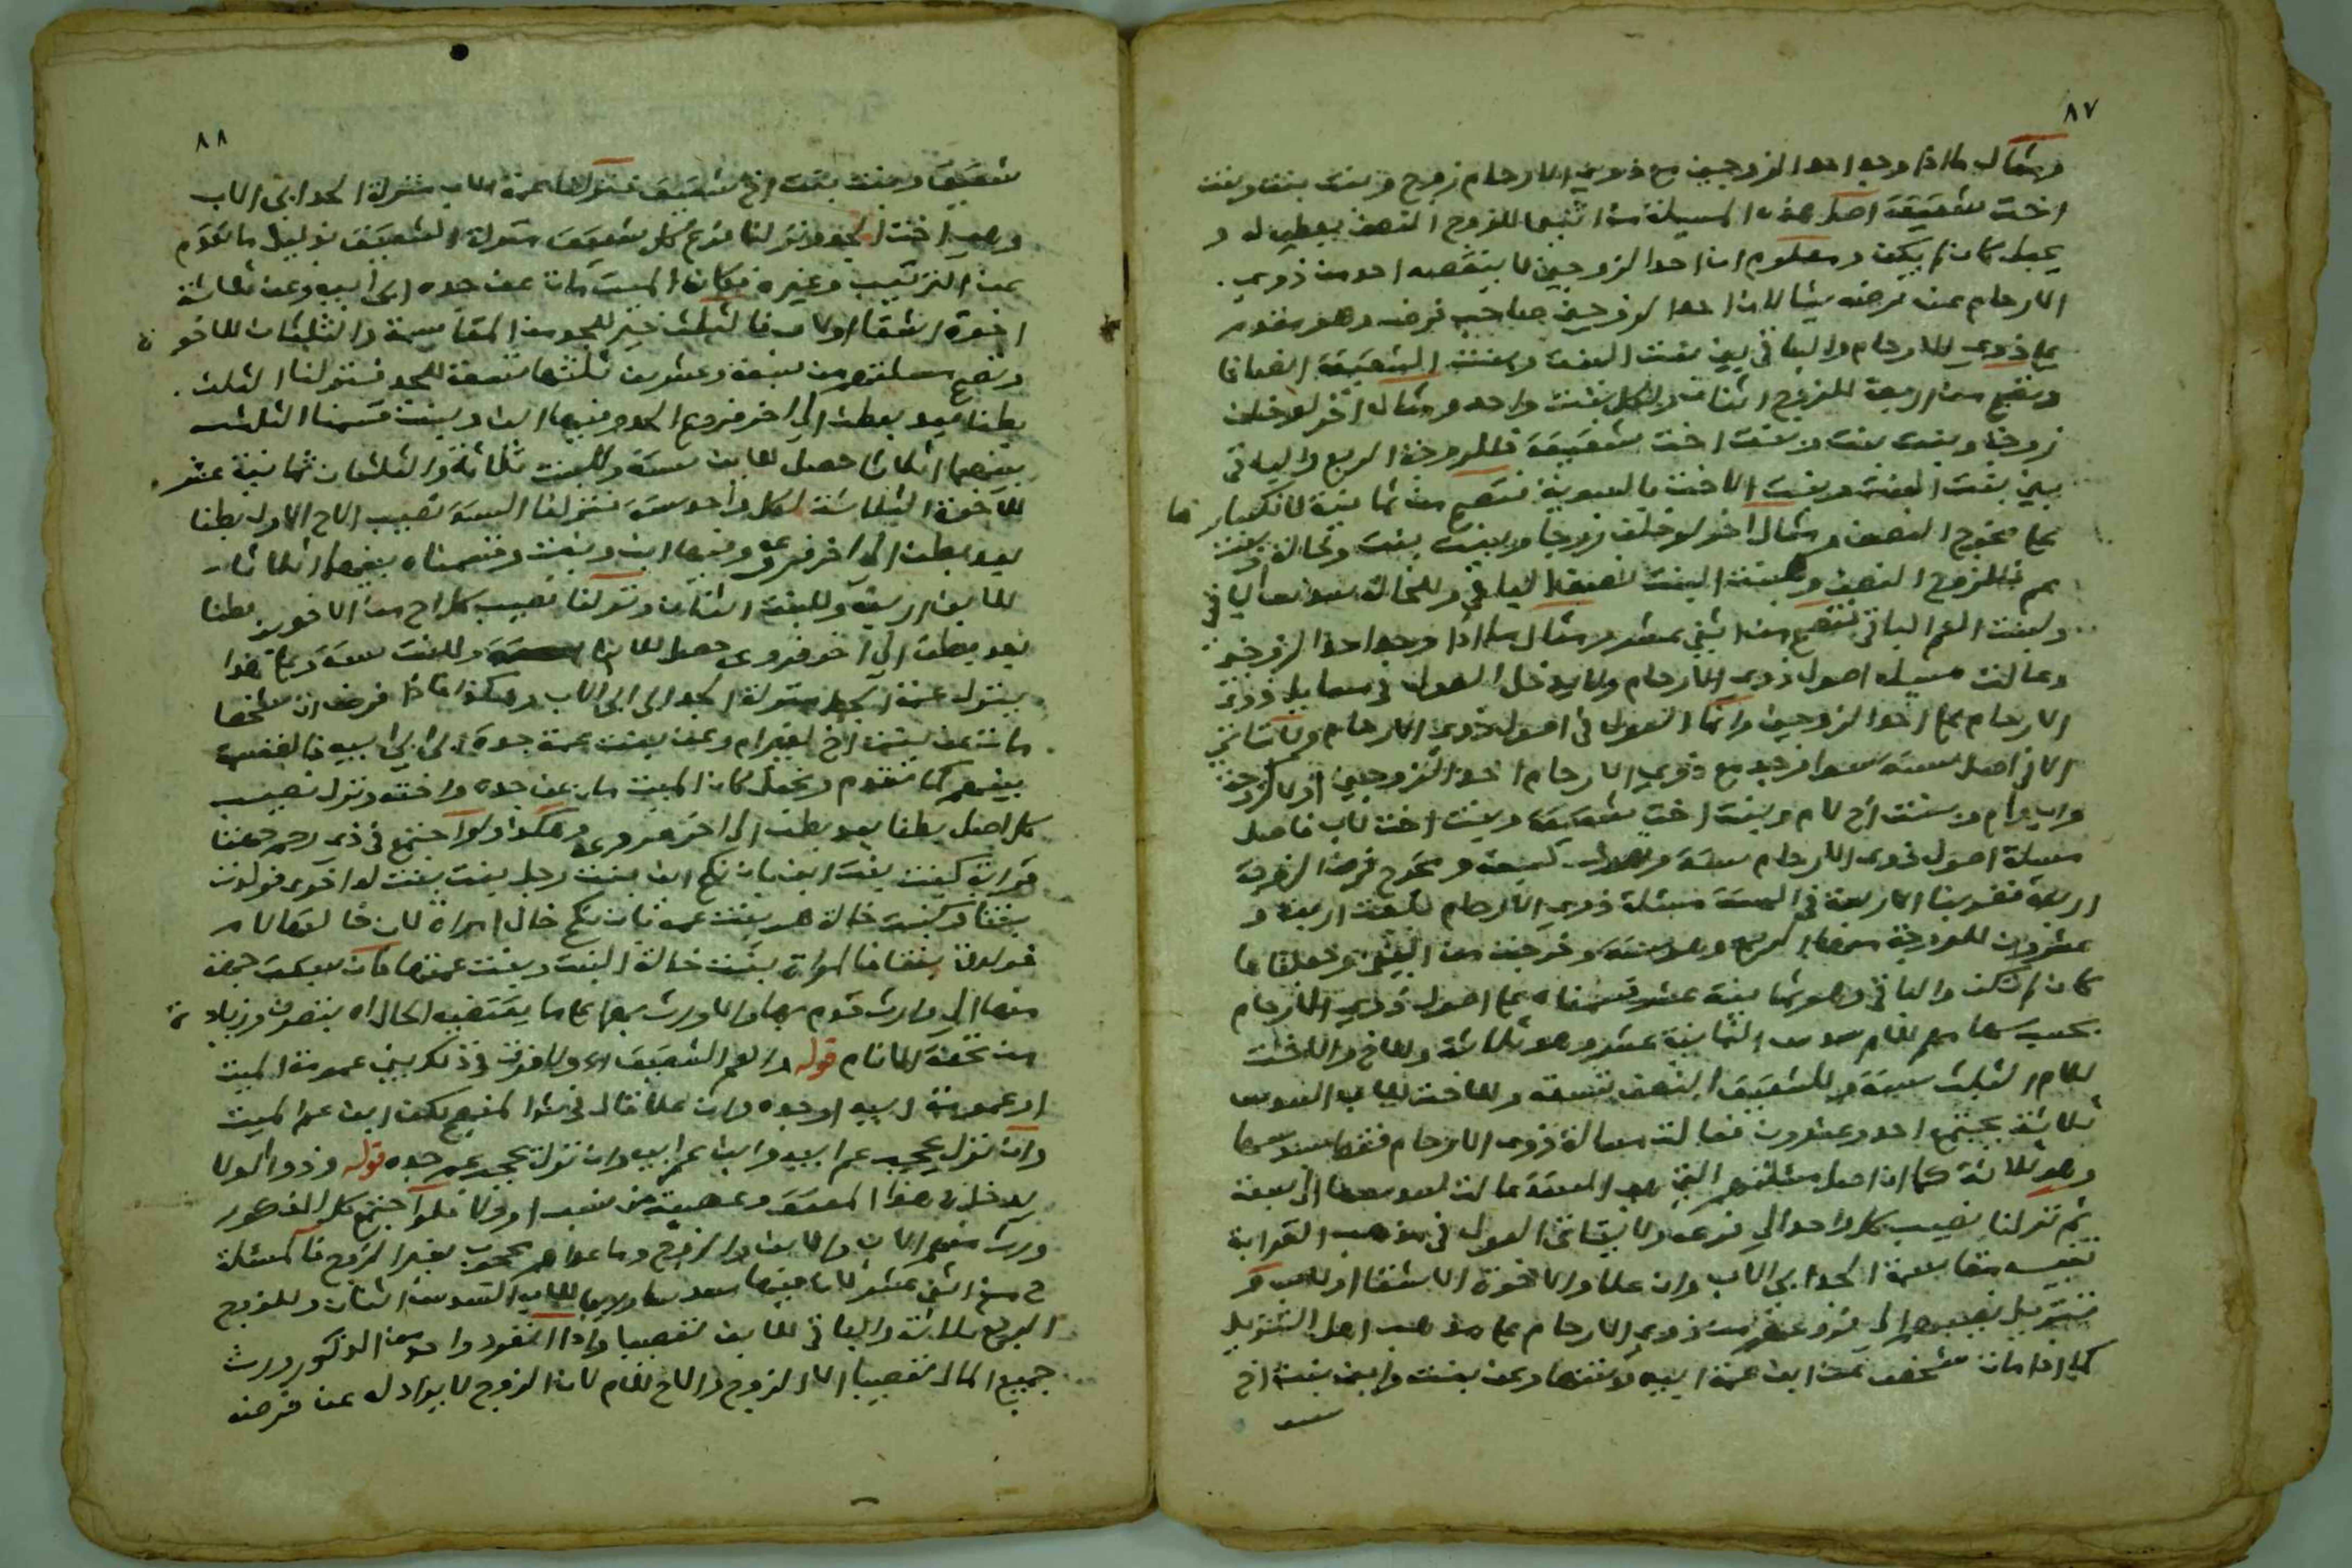 ٨٧
ومثال ما اذا وجد احد الزوجين مع ذوي الارحام زوج وبنت بنت وبنت
اخت شقيقة اصل هذه المسيلة من اثنين للزوج النصف يعطى له و
يجعل كان لم يكن ومعلوم ان احد الزوجين لا ينقصه احد من ذوي
الارحام عن فرضه شيا لان احد الزوجين صاحب فرض وهو مقدم
على ذوي الارحام والباقي بين بنت البنت وبنت الشقيقة انصافا
وتصح من اربعة للزوج اثنان ولكل بنت واحد ومثال اخر لو خلف
زوجة وبنت بنت وبنت اخت شقيقة فللزوجة الربع والباقي
بين بنت البنت وبنت الاخت بالسوية فتصح من ثمانية لانكسارها
على مخرج النصف ومثال اخر لو خلف زوجا وبنت بنت وخالة وبنت
عم فللزوج النصف ولبنت البنت نصف الباقي وللخالة سدس الباقي
ولبنت العم الباقي فتصح من اثني عشر ومثال ما اذا وجد احد الزوجين
وعالت مسيلة اصول ذوي الارحام ولا يدخل العول في مسايل ذوي
الارحام على احد الزوجين وانما العول في اصول ذوي الارحام ولا يتاتى
الا في اصل ستة سوا وجد مع ذوي الارحام احد الزوجين او لا كزوجة
واب ام وبنت اخ لام وبنت اخت شقيقة وبنت اخت لاب فاصل
مسيلة اصول ذوي الارحام ستة ومخرج فرض الزوجية
اربعة فضربنا الاربعة في الستة مسئلة ذوي الارحام بلغت اربعة و
عشرون للزوجة منها الربع وهو ستة وخرجت من البين وجعلناها
كان لم تكن والباقي وهو ثمانية عشر قسمناه على اصول ذوي الارحام
بحسب سهامهم للام سدس الثمانية عشر وهو ثلاثة وللاخ والاخت
للام الثلث ستة وللشقيقة النصف تسعة وللاخت للاب السدس
ثلاثة يجتمع احد وعشرون فعالت مسالة ذوي الارحام فنقص سدسها
وهو ثلاثة كما ان اصل مسئلتهم التي هي الستة عالت لسدسها الى سبعة
ثم نزلنا نصيب كل واحد الى فرعه ولا يتاتى العول في مذهب القرابة
تنبيه مقاسمة الجد ابي الاب وان علا والاخوة الاشقا او لاب
تنزيل نصيبهم الى فروعهم من ذوي الارحام على مذهب اهل التنزيل
كما اذا مات شخص عن ابن عمة ابيه وبنتها وعن بنت وابن بنت اخ
٨٨
شقيق وبنت بنت اخ شقيق فنزلنا عمة الاب منزلة الجد ابي الاب
وهي اخت الجد ونزلنا فرع كل شقيق منزلة الشقيق بدليل ما تقدم
من الترتيب وغيره فكان الميت مات عن جده ابي ابيه وعن ثلاثة
اخوة اشقا او لاب فالثلث خير للجد من المقاسمة والثلثان للاخوة
وتصح مسئلتهم من سبعة وعشرين ثلثها تسعة للجد فنزلنا الثلث
بطنا بعد بطن الى اخر فروع الجد وفيها ابن وبنت قسمنا الثلث
بينهما اثلاثا حصل للابن ستة وللبنت ثلاثة والثلثان ثمانية عشر
للاخوة الثلاثة لكل واحد ستة فنزلنا الستة نصيب الاخ الاول بطنا
بعد بطن الى اخر فروعه وفيها ابن وبنت وقسمناه بينهما اثلاثا
للابن اربعة وللبنت اثنان ونزلنا نصيب كل اخ من الاخوين بطنا
بعد بطن الى اخر فروعه حصل للابن ستة وللبنت ستة وعلى هذا
ينزل عمة الجد منزلة الجد ابي ابي الاب وهكذا فاذا فرض ان شخصا
مات عن بنت اخ لغير ام وعن بنت عمة جده ابي ابي ابيه فالقسمة
بينهم كما تقدم ونجعل كان الميت مات عن جده واخته وتنزل نصيب
كل اصل بطنا بعد بطن الى اخر فروعه وهكذا ولو اجتمع في ذي رحم جهتا
قرابة كبنت بنت ابن بان نكح ابن بنت رجل بنت بنت له اخرى فولدت
بنتا وكبنت خالة هي بنت عم بان نكح خال امراة لاب خالتها لام
فولدت بنتا فالمراة بنت خالة البنت وبنت عمتها فان سبقت جهة
منها الى وارث قدم بها والا ورث بهما على ما يقتضيه الحال اه بتصرف وزيادة
من تحفة الانام قوله والعم الشقيق اه ولا فرق في ذلك بين عمومة الميت
او عمومة ابيه او جده وان علا قال في شرح المنهج لكن ابن عم الميت
وان نزل يحجب عم ابيه وابن عم ابيه وان نزل يحجب عم جده قوله وذو الولا
يدخل في هذا المعتق وعصبته من نسب او ولا فلو اجتمع كل الذكور
ورث منهم الاب والابن والزوج وما عداهم محجوب بغير الزوج فالمسئلة
ح من اثني عشر لان فيها سدسا وربعا للاب السدس اثنان وللزوج
الربع ثلاثة والباقي للابن تعصيبا واذا انفرد واحد من الذكور ورث
جميع المال تعصيبا الا الزوج والاخ للام لان الزوج لا يزاد له عن فرضه